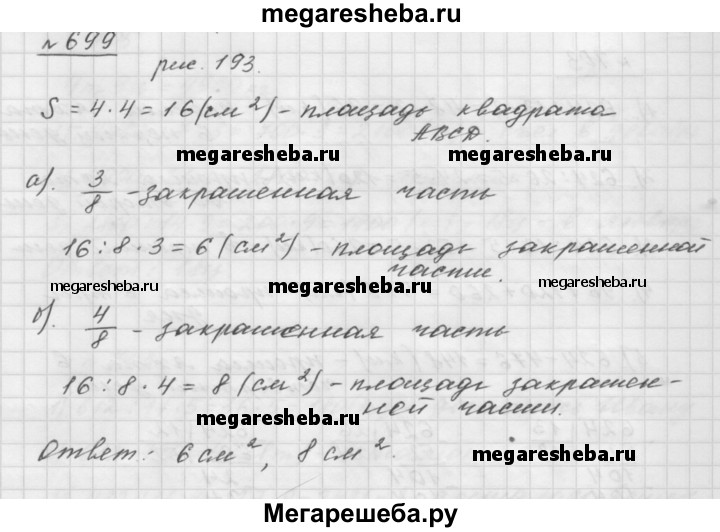 megaresheba.ru
№ 699
рис. 193.
S = 4·4 = 16 (см²) - площадь квадрата
ABCD.
megaresheba.ru megaresheba.ru
а). 3/8 - закрашенная часть
16:8·3 = 6 (см²) - площадь закрашенной
части.
megaresheba.ru megaresheba.ru megaresheba.ru
б). 4/8 - закрашенная часть
16:8·4 = 8 (см²) - площадь закрашен-
ной части.
megaresheba.ru
Ответ: 6 см², 8 см².
megaresheba.ru
Мегарешеба.ру